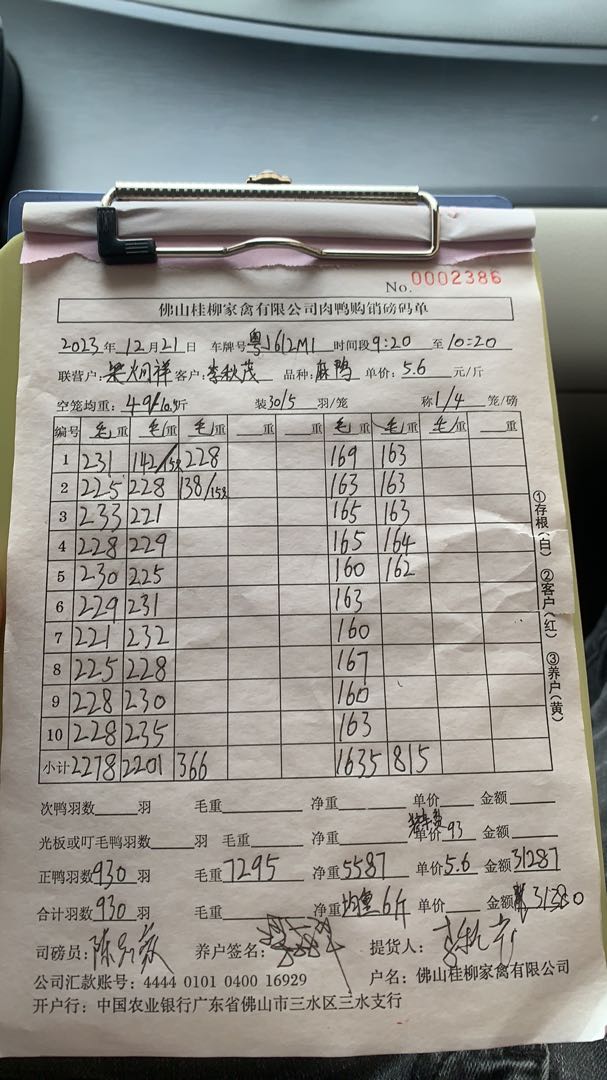 No. 0002386
佛山桂柳家禽有限公司肉鸭购销磅码单
2023年12月21日 车牌号粤J612M1 时间段9:20至10:20
联营户:梁炳祥 客户:李秋茂 品种:麻鸭 单价:5.6元/斤
空笼均重: 斤 装30/5羽/笼 称1/4笼/磅
编号 毛重 毛重 毛重 重 重 毛重 毛重 毛重 重
1 231 142/15只 228 169 163
2 225 228 138/15只 163 163
3 233 221 165 163
4 228 229 165 164
5 230 225 160 162
6 229 231 163
7 221 232 160
8 225 228 167
9 228 230 160
10 228 235 163
小计 2278 2201 366 1635 815
次鸭羽数 羽 毛重 净重 单价 金额
光板或叮毛鸭羽数 羽 毛重 净重 单价93 金额
正鸭羽数930羽 毛重7295 净重5587 单价5.6 金额31287
合计羽数930羽 毛重 净重均重6斤 单价 金额31380
司磅员: 养户签名: 提货人:
公司汇款账号: 4444 0101 0400 16929 户名: 佛山桂柳家禽有限公司
开户行: 中国农业银行广东省佛山市三水区三水支行
①存根(白) ②客户(红) ③养户(黄)